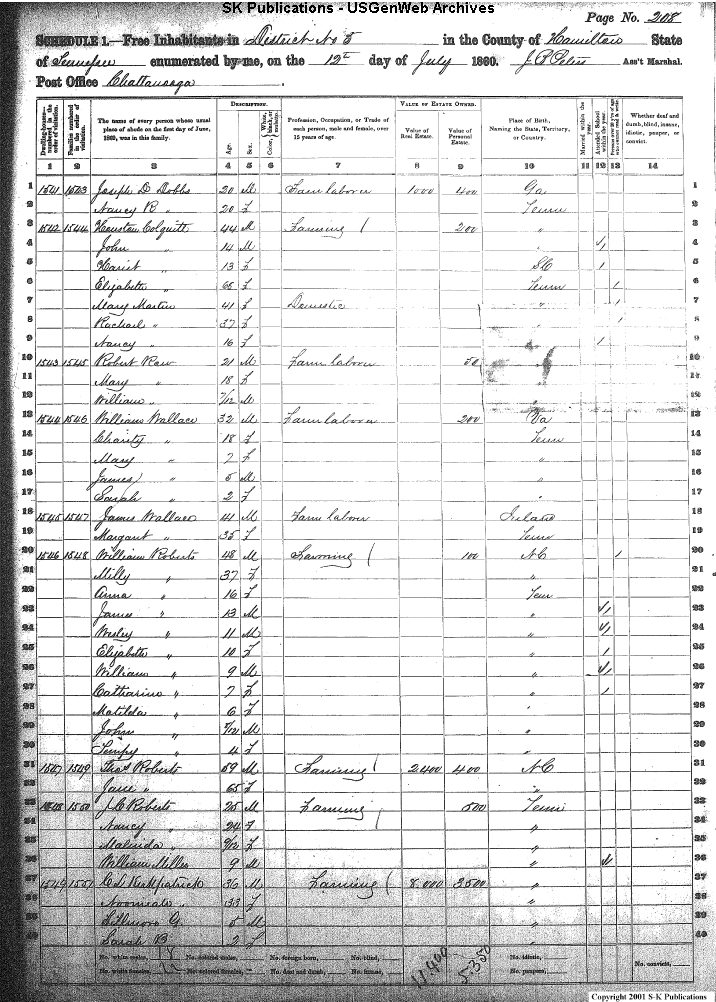 SK Publications - USGenWeb Archives
Page No. 208
SCHEDULE 1.—Free Inhabitants in District No 5 in the County of Hamilton State
of Tennessee enumerated by me, on the 12th day of July 1860. Ass't Marshal.
Post Office Chattanooga
Dwelling-houses— numbered in the order of visitation.
Families numbered in the order of visitation.
The name of every person whose usual place of abode on the first day of June, 1860, was in this family.
DESCRIPTION.
Age.
Sex.
Color, White, black, or mulatto.
Profession, Occupation, or Trade of each person, male and female, over 15 years of age.
VALUE OF ESTATE OWNED.
Value of Real Estate.
Value of Personal Estate.
Place of Birth, Naming the State, Territory, or Country.
Married within the year.
Attended School within the year.
Persons over 20 y'rs of age who cannot read & write.
Whether deaf and dumb, blind, insane, idiotic, pauper, or convict.
1 2 3 4 5 6 7 8 9 10 11 12 13 14
1 1541 1543 Joseph D Dobbs 20 M Farm laborer 1000 400 Ga 1
2 Nancy B " 20 f Tenn 2
3 1542 1544 Houston Colquitt 44 M Farming 200 " 3
4 John " 14 M " 1 4
5 Hariet " 13 f SC 1 5
6 Elizabeth " 68 f Tenn 1 6
7 Mary Martin 41 f Domestic " 1 7
8 Rachael " 37 f 1 8
9 Nancy " 16 f 1 9
10 1543 1545 Robert 21 M Farm laborer 50 10
11 Mary " 18 f 11
12 William " 7/12 M 12
13 1544 1546 William Wallace 32 M Farm laborer 200 Va 13
14 Charity " 18 f Tenn 14
15 Mary " 7 f " 15
16 James " 5 M " 16
17 Sarah " 2 f " 17
18 1545 1547 James Wallace 41 M Farm laborer Ireland 18
19 Margaret " 35 f Tenn 19
20 1546 1548 William Roberts 48 M Farming 100 NC 1 20
21 Milly " 37 f " 21
22 Anna " 16 f Ten 22
23 James " 13 M " 1 23
24 Wesley " 11 M " 1 24
25 Elizabeth " 10 f " 1 25
26 William " 9 M " 1 26
27 Catharine " 7 f " 1 27
28 Matilda " 6 f " 28
29 John " M " 29
30 Tempy " 4 f " 30
31 1547 1549 Thos Roberts 59 M Farming 2400 400 NC 31
32 Jane " 65 f 32
33 1548 1550 J C Roberts 25 M Farming 500 Tenn 33
34 Nancy " 24 f " 34
35 Malinda " f " 35
36 William Miller 9 M " 1 36
37 1549 1551 Kirkpatrick 36 M Farming 8.000 2500 " 37
38 " 33 f " 38
39 G. 5 M " 39
40 Sarah B 2 f 40
No. white males, No. colored males, No. foreign born, No. blind, No. idiotic,
No. white females, No. colored females, No. deaf and dumb, No. insane, No. paupers, No. convicts,
11,400 5350
Copyright 2001 S-K Publications